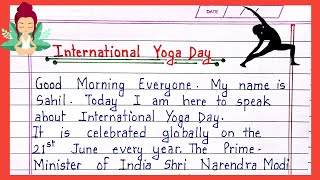 DATE
International Yoga Day
Good Morning Everyone. My name is
Sahil. Today I am here to speak
about International Yoga Day.
It is celebrated globally on the
21st June every year. The Prime-
Minister of India Shri Narendra Modi